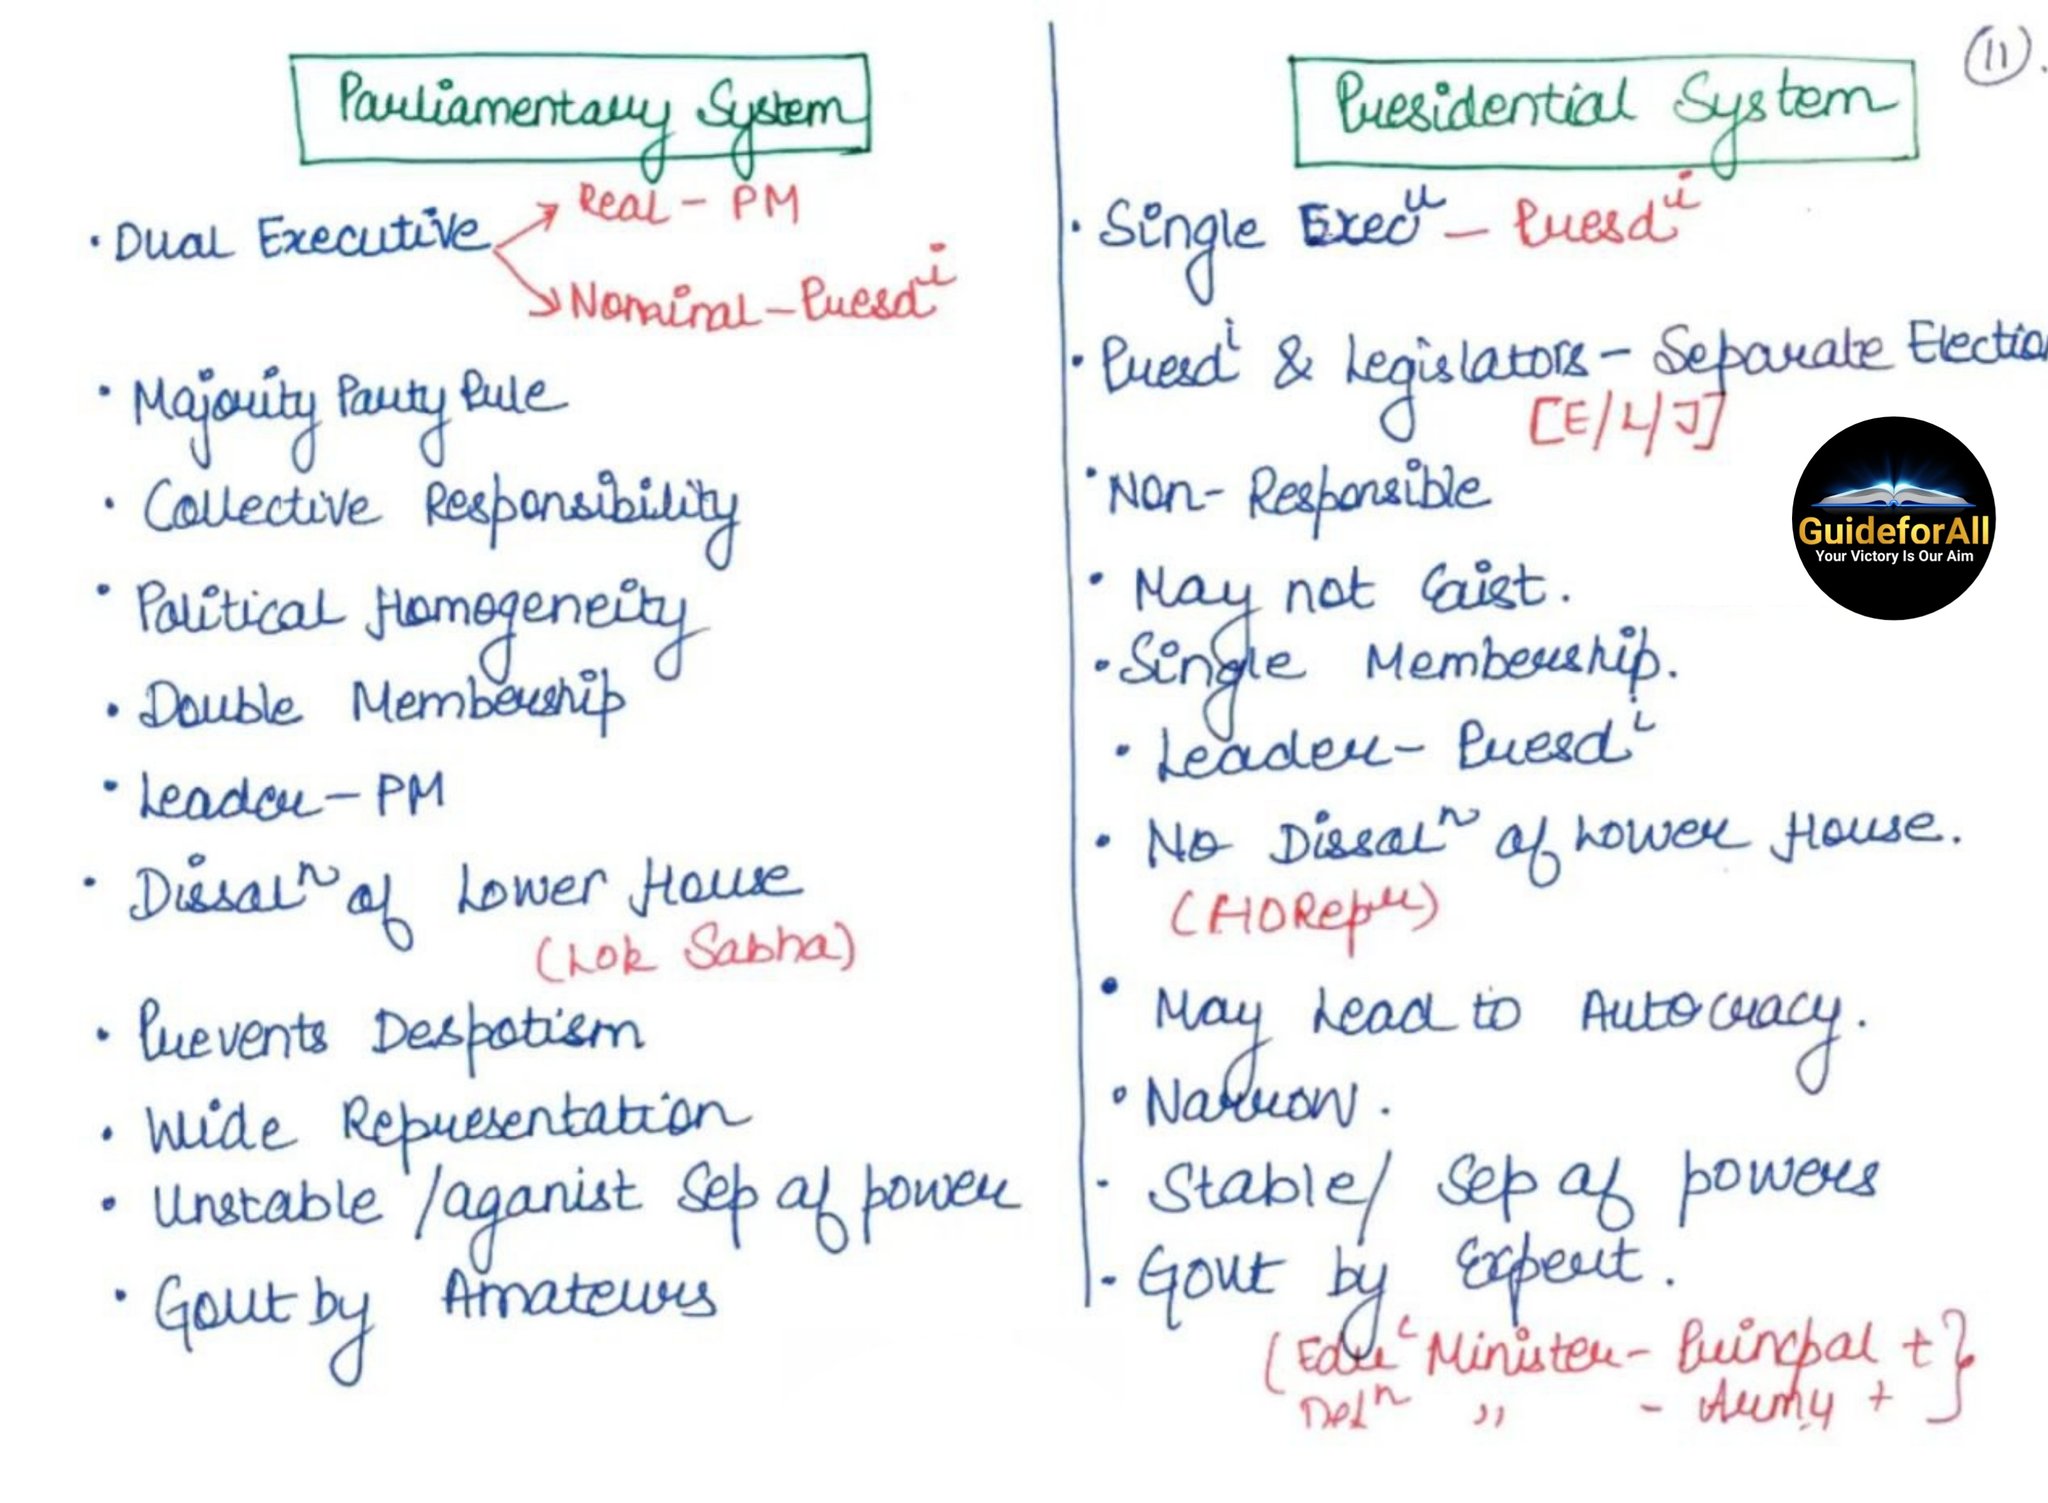 11.
Parliamentary System
• Dual Executive
Real - PM
Nominal - Presdi
• Majority Party Rule
• Collective Responsibility
• Political Homogeneity
• Double Membership
• Leader - PM
• Dissoln of Lower House
(Lok Sabha)
• Prevents Despotism
• Wide Representation
• Unstable / aganist Sep of power
• Govt by Amateurs
Presidential System
• Single Execu - Presdi
• Presdi & Legislators - Separate Election
[E/L/J]
• Non-Responsible
• May not Exist.
• Single Membership.
• Leader - Presdi
• No Dissoln of Lower House.
(HORepr)
• May Lead to Autocracy.
• Narrow.
• Stable / Sep of powers
• Govt by Expert.
Minister - Princpal +
Defn " - Army +
GuideforAll
Your Victory Is Our Aim